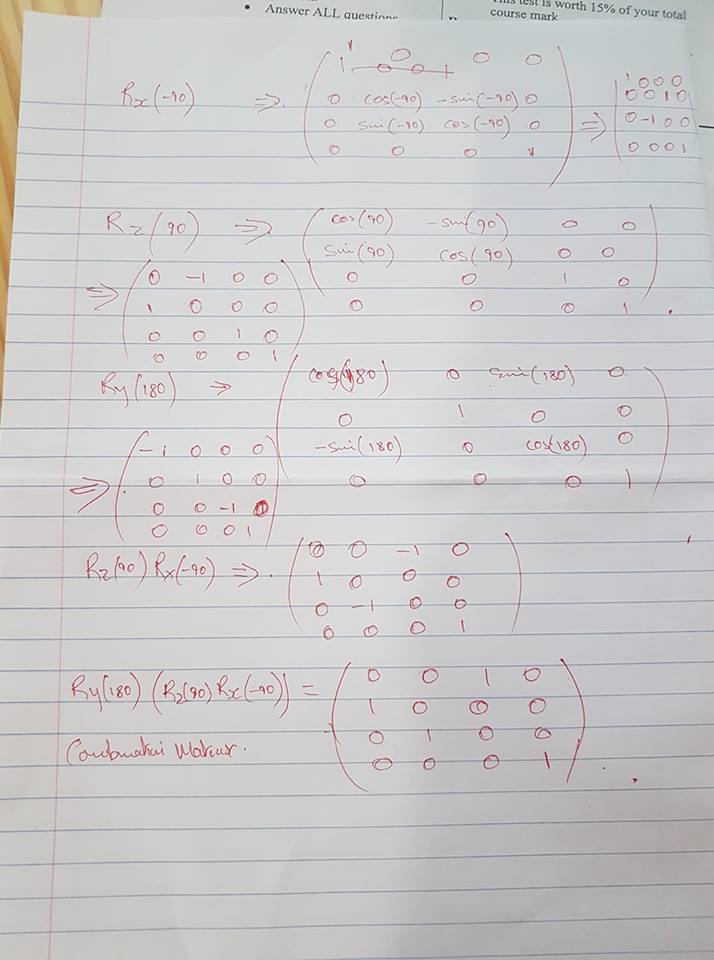 • Answer ALL questions
This test is worth 15% of your total
course mark
Rx(-90) ⇒ ( 1 0 0 0
0 cos(-90) -sin(-90) 0
0 sin(-90) cos(-90) 0
0 0 0 1 )
⇒ ( 1 0 0 0
0 0 1 0
0 -1 0 0
0 0 0 1
Rz(90) ⇒ ( cos(90) -sin(90) 0 0
sin(90) cos(90) 0 0
0 0 1 0
0 0 0 1 )
⇒ ( 0 -1 0 0
1 0 0 0
0 0 1 0
0 0 0 1 )
Ry(180) ⇒ ( cos(180) 0 sin(180) 0
0 1 0 0
-sin(180) 0 cos(180) 0
0 0 0 1 )
⇒ ( -1 0 0 0
0 1 0 0
0 0 -1 0
0 0 0 1 )
Rz(90) Rx(-90) ⇒ ( 0 0 -1 0
1 0 0 0
0 -1 0 0
0 0 0 1 )
Ry(180) (Rz(90) Rx(-90)) = ( 0 0 1 0
1 0 0 0
0 1 0 0
0 0 0 1 )